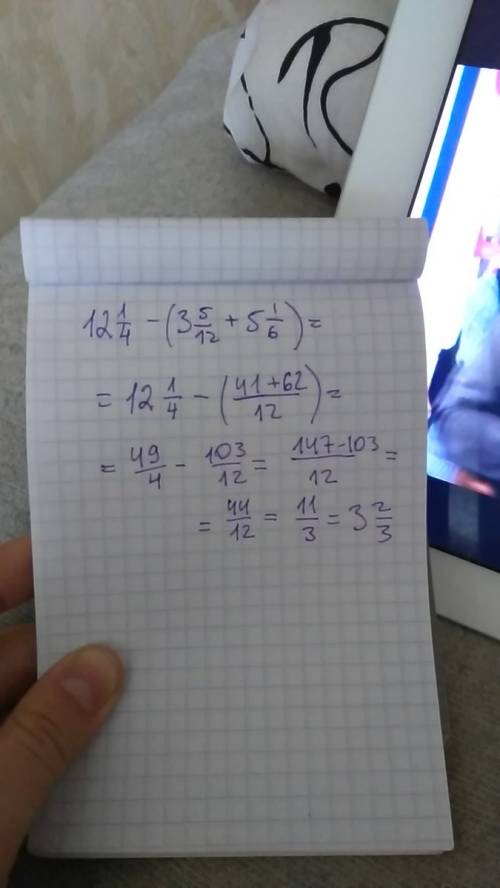 12 1/4 - (3 5/12 + 5 1/6) =
= 12 1/4 - (41+62/12) =
= 49/4 - 103/12 = 147-103/12 =
= 44/12 = 11/3 = 3 2/3